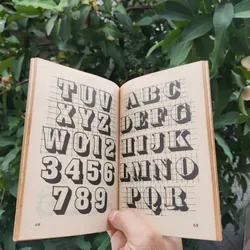 TUV
XYZ
WO12
3456
789
68
ABC
DEFG
HIJK
LMNO
PQR
69